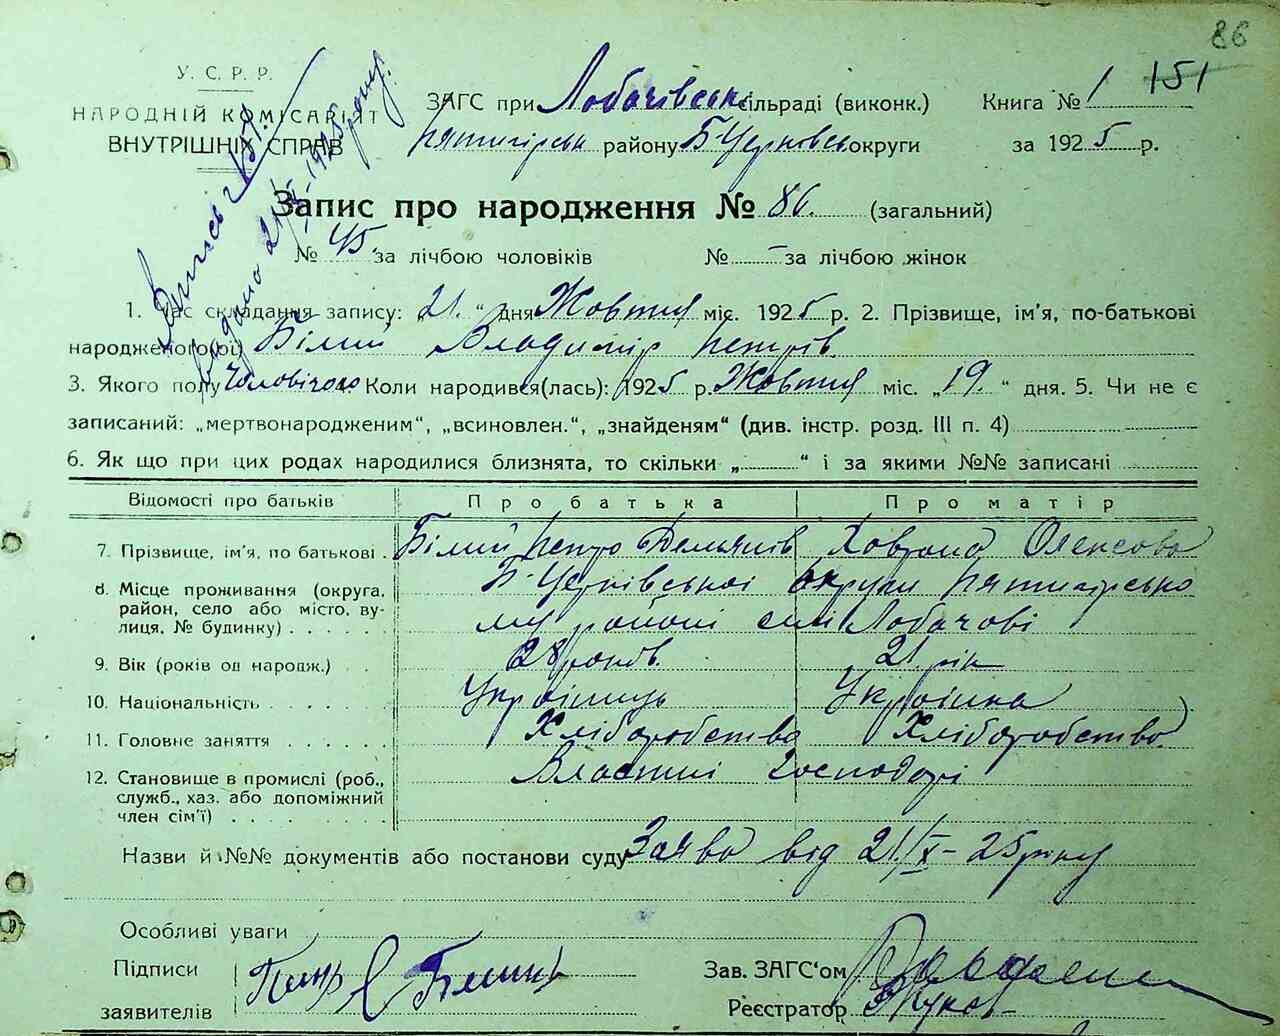 86
У. С. Р. Р.
НАРОДНІЙ КОМІСАРІЯТ
ВНУТРІШНІХ СПРАВ
ЗАГС при Лобачівськ. сільраді (виконк.) Книга № 1 151
Пятигірськ району Б-Церковсь округи за 1925 р.
Запис про народження № 86. (загальний)
№ 45. за лічбою чоловіків № – за лічбою жінок
видано 21/X-1925 року.
1. Час складання запису: „21.“ дня Жовтня міс. 1925 р. 2. Прізвище, ім'я, по-батькові
народженого(ої) Білий Владимір Петрів.
3. Якого полу Чоловічого 4. Коли народився(лась): 1925 р. Жовтня міс. „19.“ дня. 5. Чи не є
записаний: „мертвонародженим“, „всиновлен.“, „знайденям“ (див. інстр. розд. III п. 4)
6. Як що при цих родах народилися близнята, то скільки „ “ і за якими №№ записані
Відомості про батьків Про батька Про матір
7. Прізвище, ім'я, по батькові . Білий Петро Демянів Хаврона Олексова
8. Місце проживання (округа, район, село або місто, вулиця, № будинку) . . . . . . Б-Церківської округи Пятигірсько
му районі селі Лобачові
9. Вік (років од народж.) . . 28 років. 21 рік
10. Національність . . . . . . Українець Українка
11. Головне заняття . . . . . . Хліборобство Хліборобство.
12. Становище в промислі (роб., служб., хаз. або допоміжний член сім'ї) . . . . . . . . Властні господарі
Назви й №№ документів або постанови суду Заява від 21/X-25 року
Особливі уваги
Підписи
заявителів
Зав. ЗАГС'ом
Реєстратор